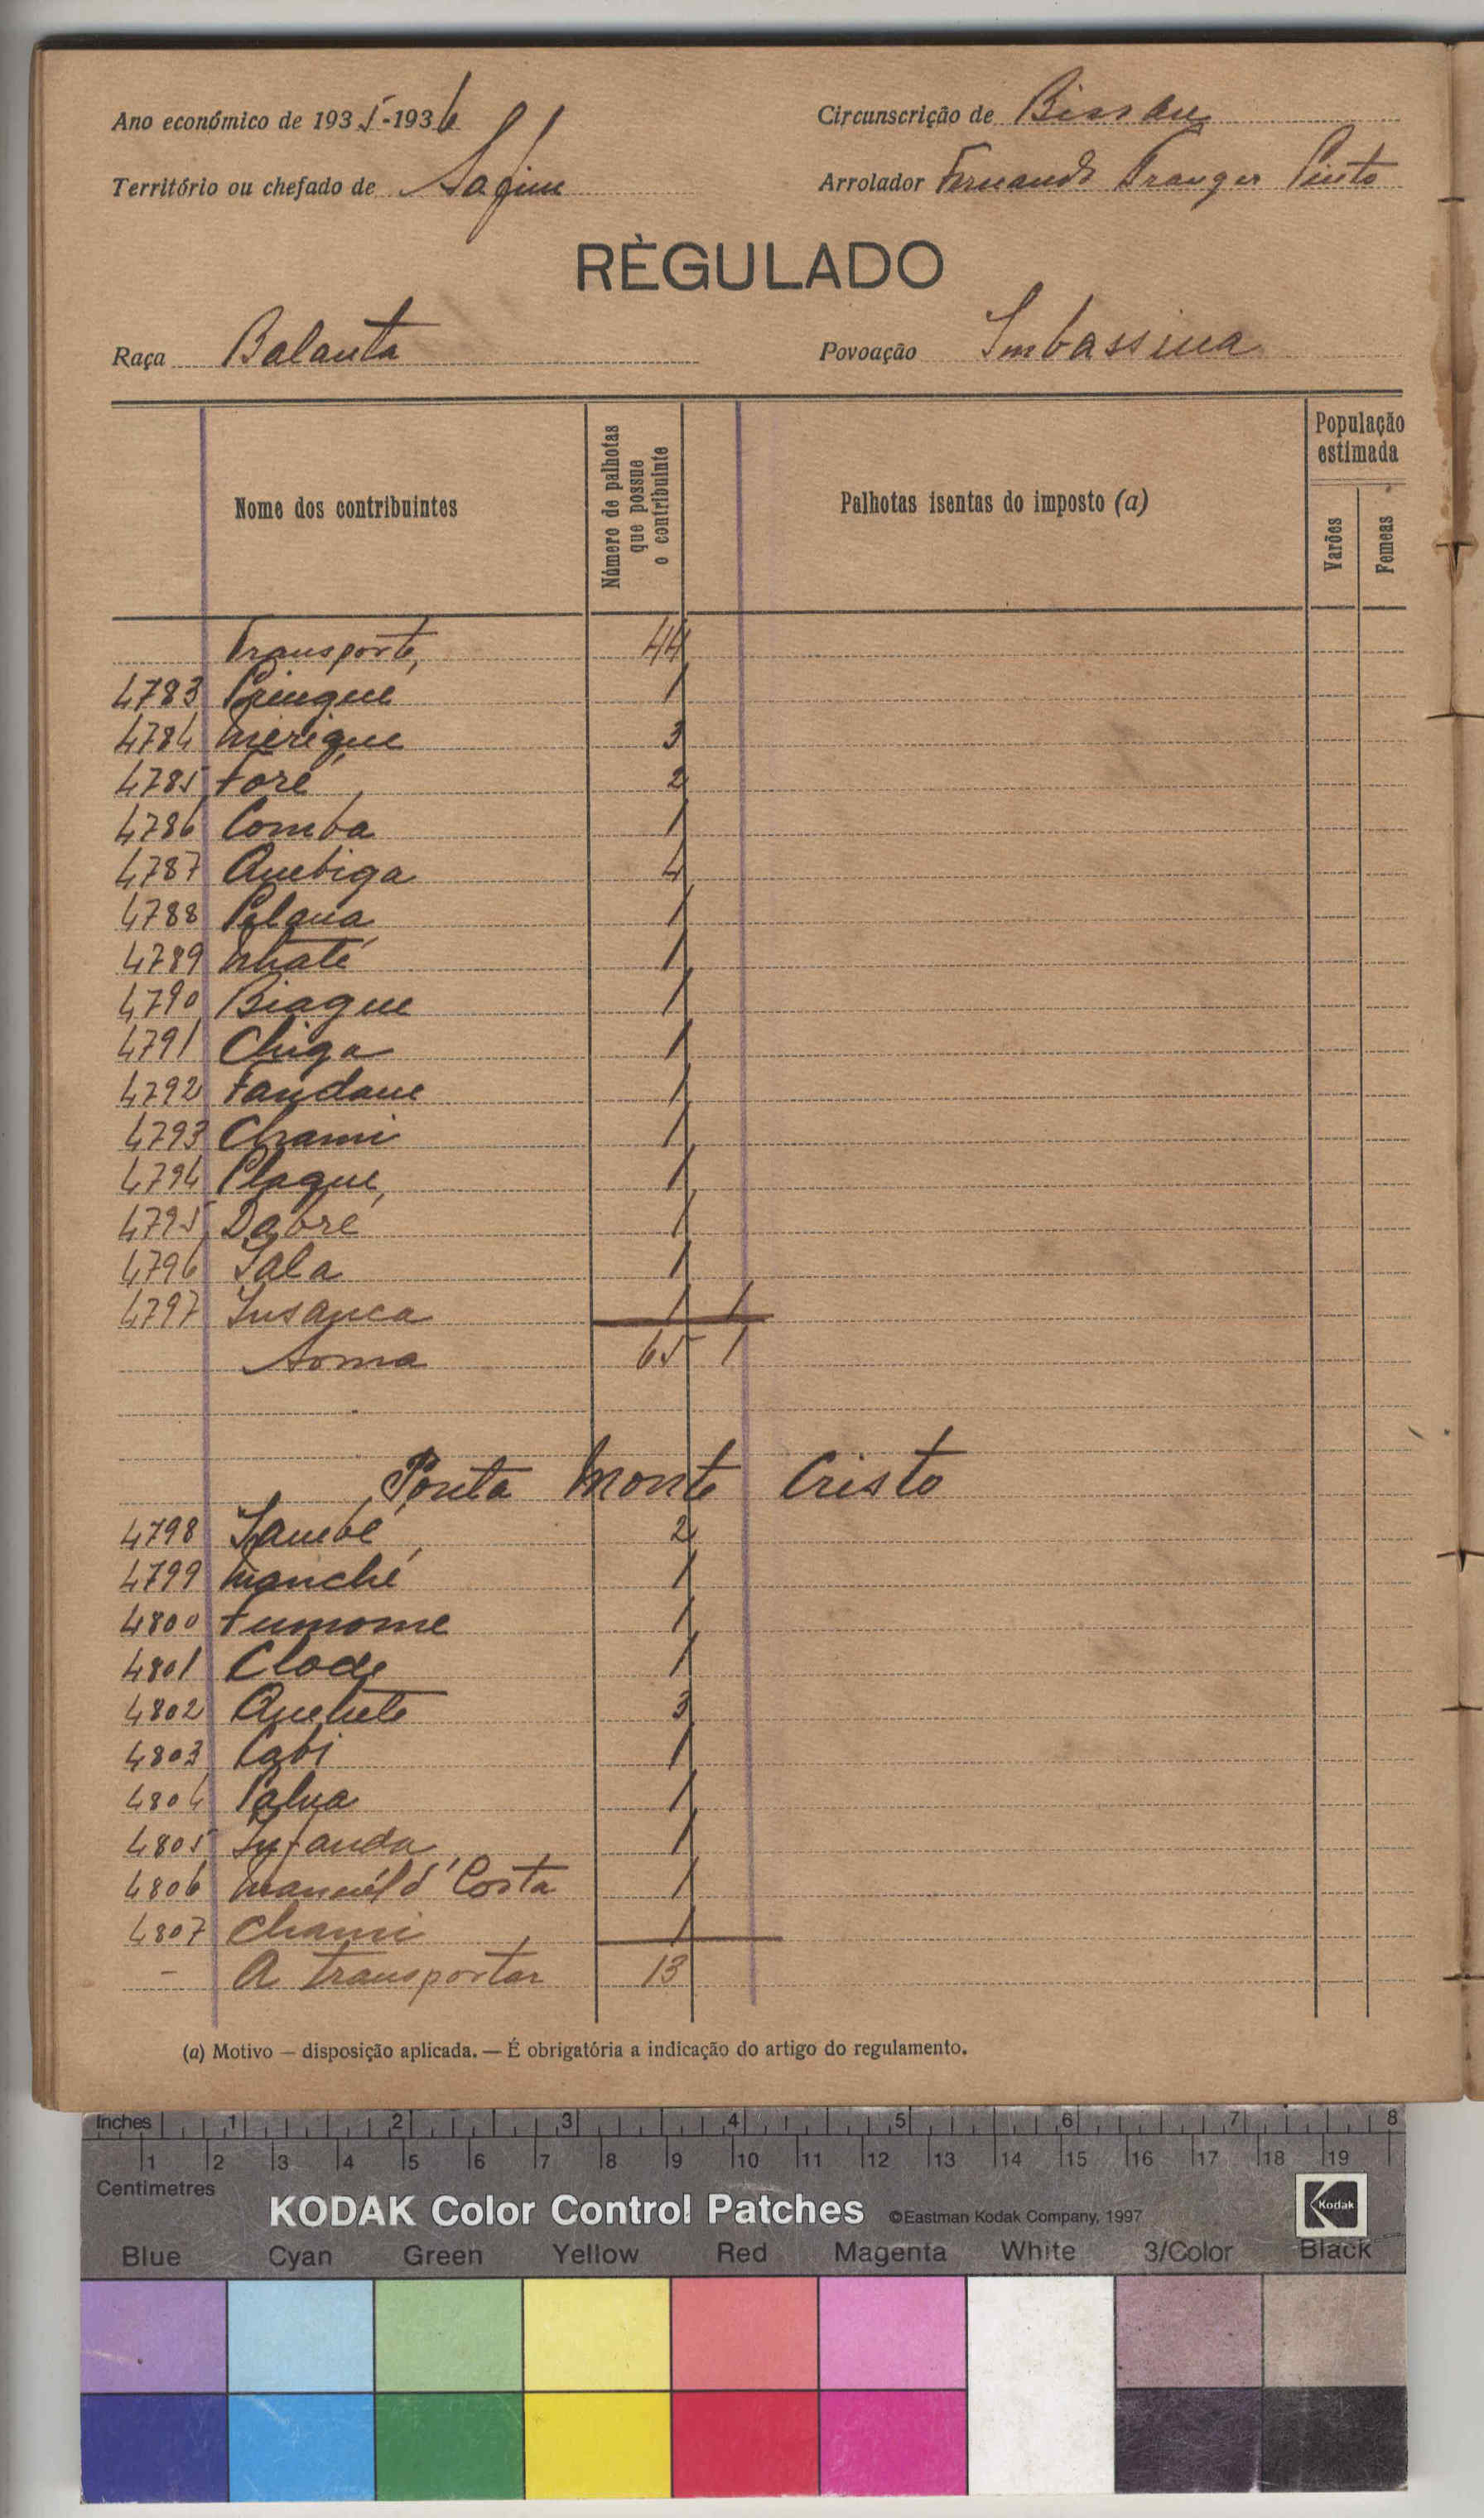 Ano económico de 1935-1936
Circunscrição de Bissau
Território ou chefado de Safim
Arrolador Fernando Pinto
RÈGULADO
Raça Balanta
Povoação Imbassina
Nome dos contribuintes
Número de palhotas que possue o contribuinte
Palhotas isentas do imposto (a)
População estimada
Varões
Femeas
Transporte, 44
4783 1
4784 3
4785 Foré 2
4786 Comba 1
4787 Quebiga 4
4788 Pelana 1
4789 Nhaté 1
4790 Biague 1
4791 Chiga 1
4792 Fandane 1
4793 Chami 1
4794 Plaque 1
4795 Dabré 1
4796 Sala 1
4797 Insanca 1 1
Soma 65 1
Ponta Monte Cristo
4798 2
4799 Manché 1
4800 Fumome 1
4801 Clode 1
4802 3
4803 Cabi 1
4804 1
4805 Infanda 1
4806 Manuél d'Costa 1
4807 Chami 1
- A transportar 13
(a) Motivo — disposição aplicada. — É obrigatória a indicação do artigo do regulamento.
Inches 1 2 3 4 5 6 7 8
1 2 3 4 5 6 7 8 9 10 11 12 13 14 15 16 17 18 19
Centimetres
KODAK Color Control Patches ©Eastman Kodak Company, 1997 Kodak
Blue Cyan Green Yellow Red Magenta White 3/Color Black